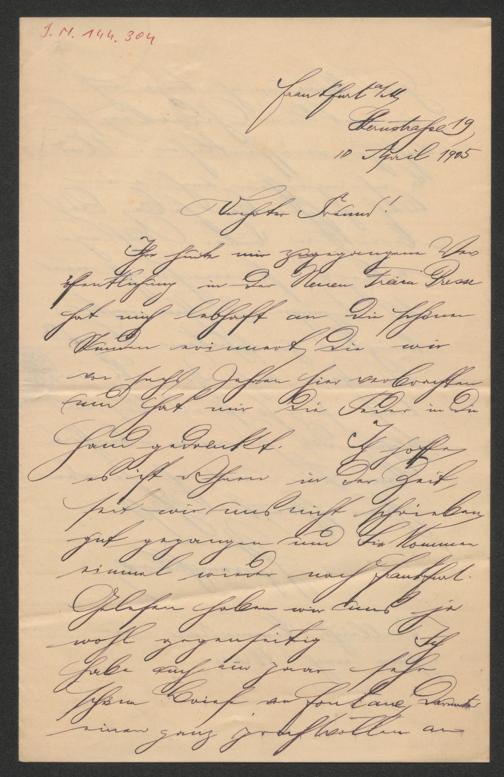 J. N. 144.304
Frankfurt a/M
Sternstrasse 19,
10 April 1905
Verehrter Freund!
Ihre heute mir zugegangene Ver
öffentlichung in der Neuen Freien Presse
hat mich lebhaft an die schönen
Stunden erinnert, die wir
vor sechs Jahren hier verbrachten
und hat mir die Feder in die
Hand gedrückt. Ich hoffe,
es ist Ihnen in der Zeit,
seit wir uns nicht schrieben
gut gegangen und Sie kommen
einmal wieder nach Frankfurt.
Gelesen haben wir uns ja
wohl gegenseitig Ich
habe auch ein paar sehr
schöne Briefe von Fontane, darunter
einen ganz prachtvollen an